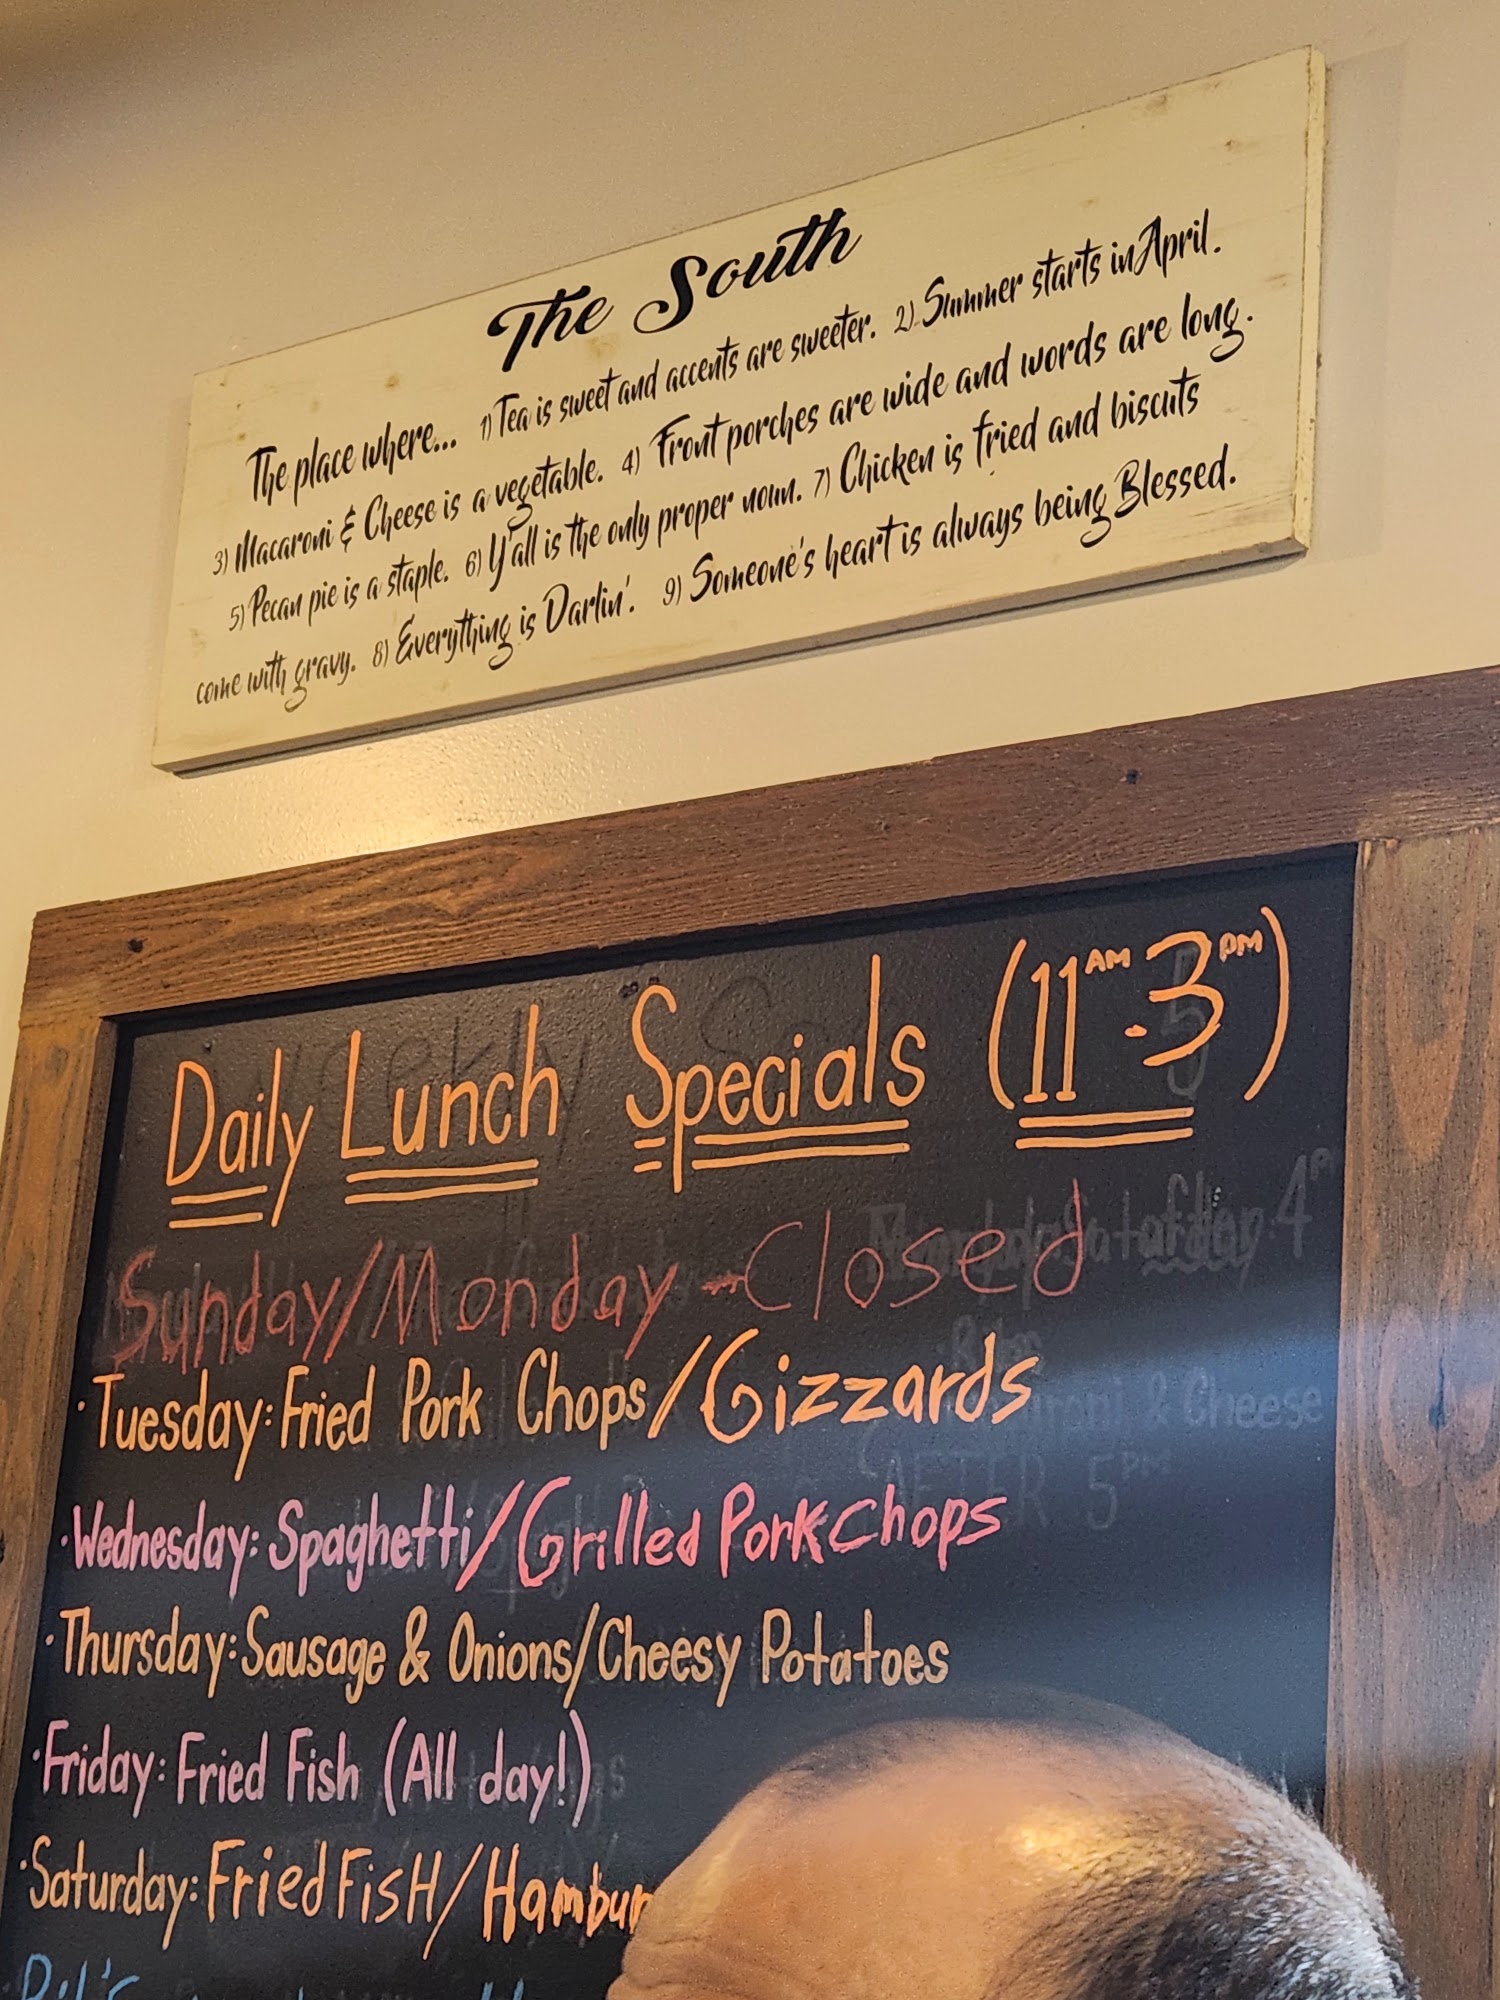 The South
The place where... 1) Tea is sweet and accents are sweeter. 2) Summer starts in April.
3) Macaroni & Cheese is a vegetable. 4) Front porches are wide and words are long.
5) Pecan pie is a staple. 6) Y'all is the only proper noun. 7) Chicken is fried and biscuits
come with gravy. 8) Everything is Darlin'. 9) Someone's heart is always being Blessed.
Daily Lunch Specials (11AM-3PM)
Sunday/Monday-Closed
·Tuesday: Fried Pork Chops/Gizzards
·Wednesday: Spaghetti/Grilled Pork Chops
·Thursday: Sausage & Onions/Cheesy Potatoes
·Friday: Fried Fish (All day!)
·Saturday: Fried FisH/Hambur
& Cheese
AFTER 5PM